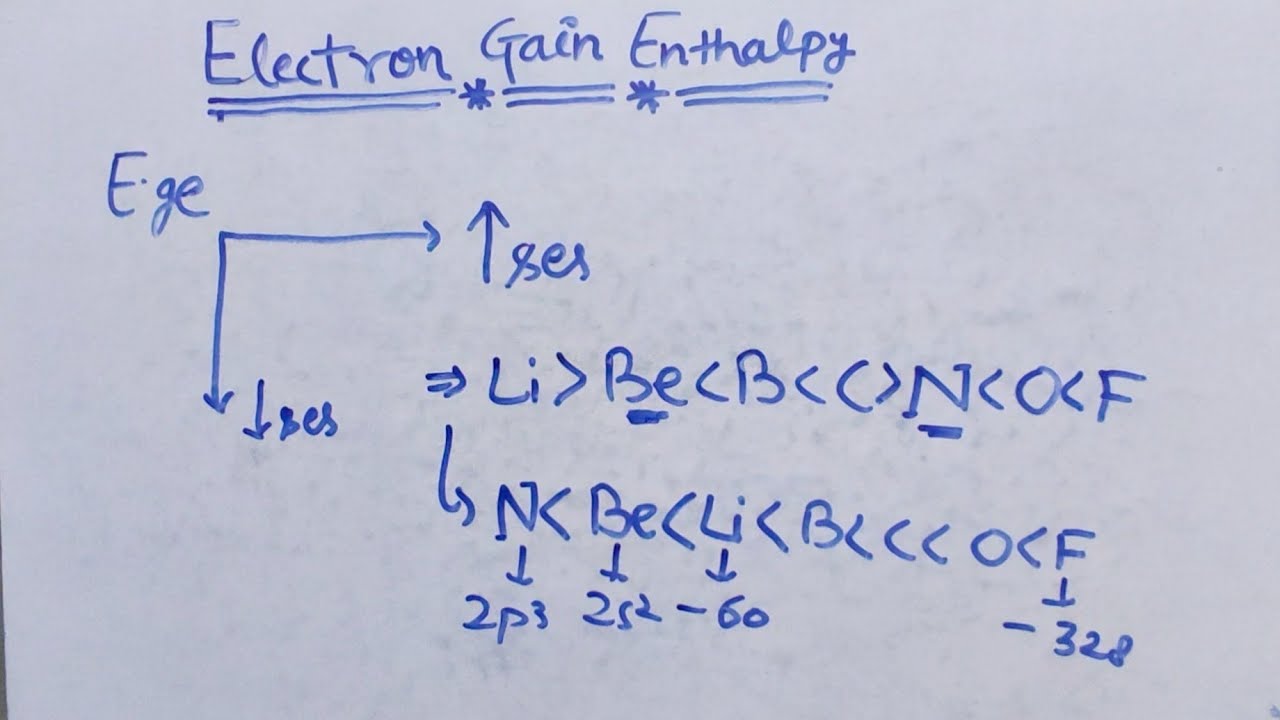 Electron * Gain * Enthalpy
E·ge
→ ↑ses
↓ses
⇒ Li>Be<B<C>N<O<F
↳ N<Be<Li<B<C< O<F
↓ ↓ ↓ ↓
2p3 2s2 -60 -328